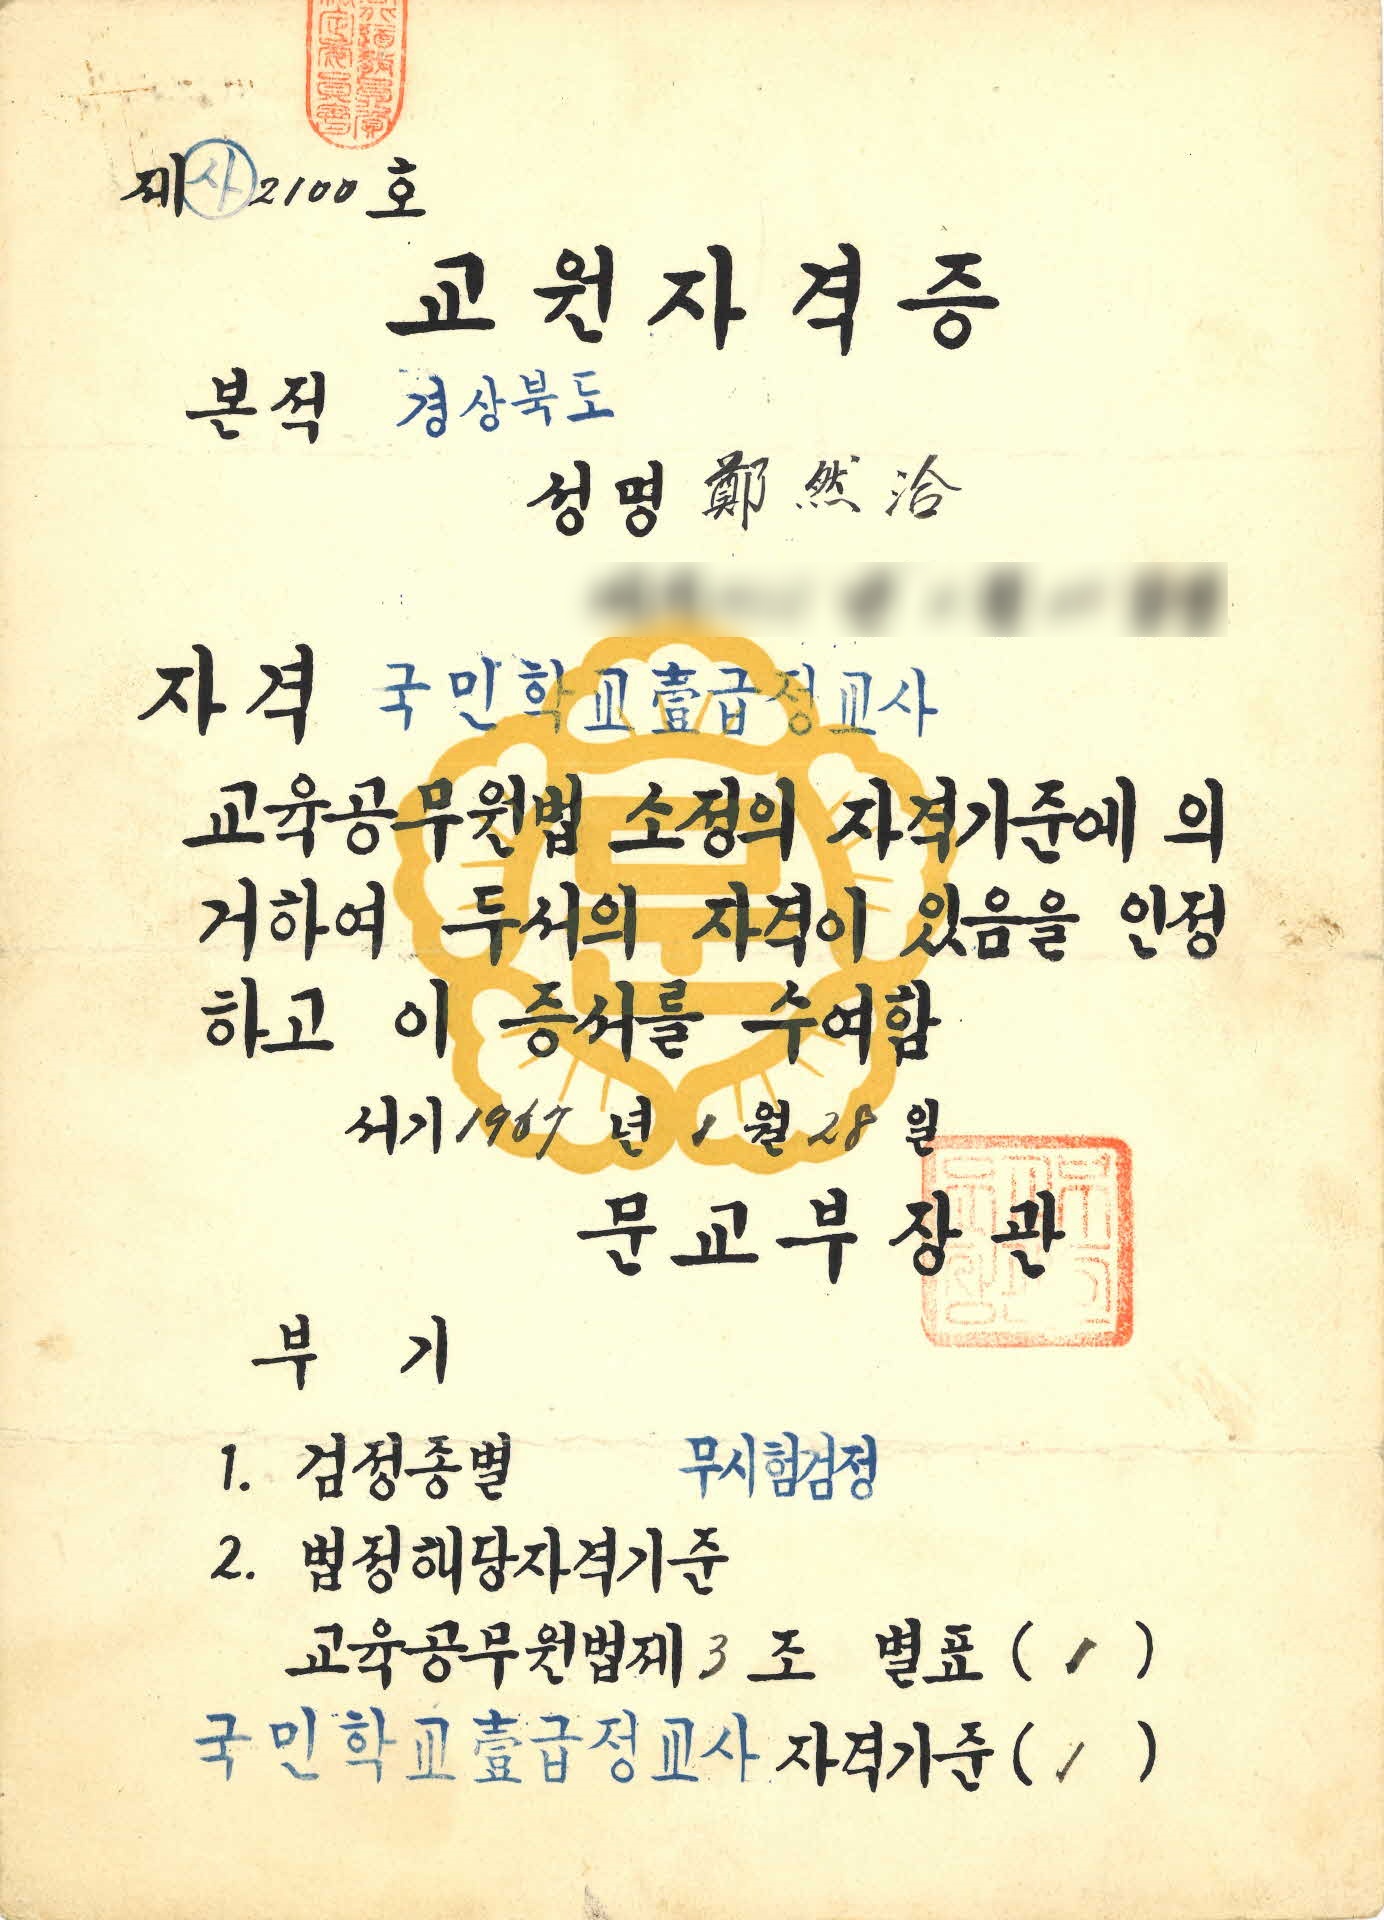 제 사 2100 호
교원자격증
본적 경상북도
성명 鄭然洽
자격 국민학교壹급정교사
교육공무원법 소정의 자격기준에 의
거하여 두서의 자격이 있음을 인정
하고 이 증서를 수여함
서기 1967 년 1 월 28 일
문교부장관
부 기
1. 검정종별 무시험검정
2. 법정해당자격기준
교육공무원법제 3 조 별표 ( 1 )
국민학교壹급정교사 자격기준 ( 1 )